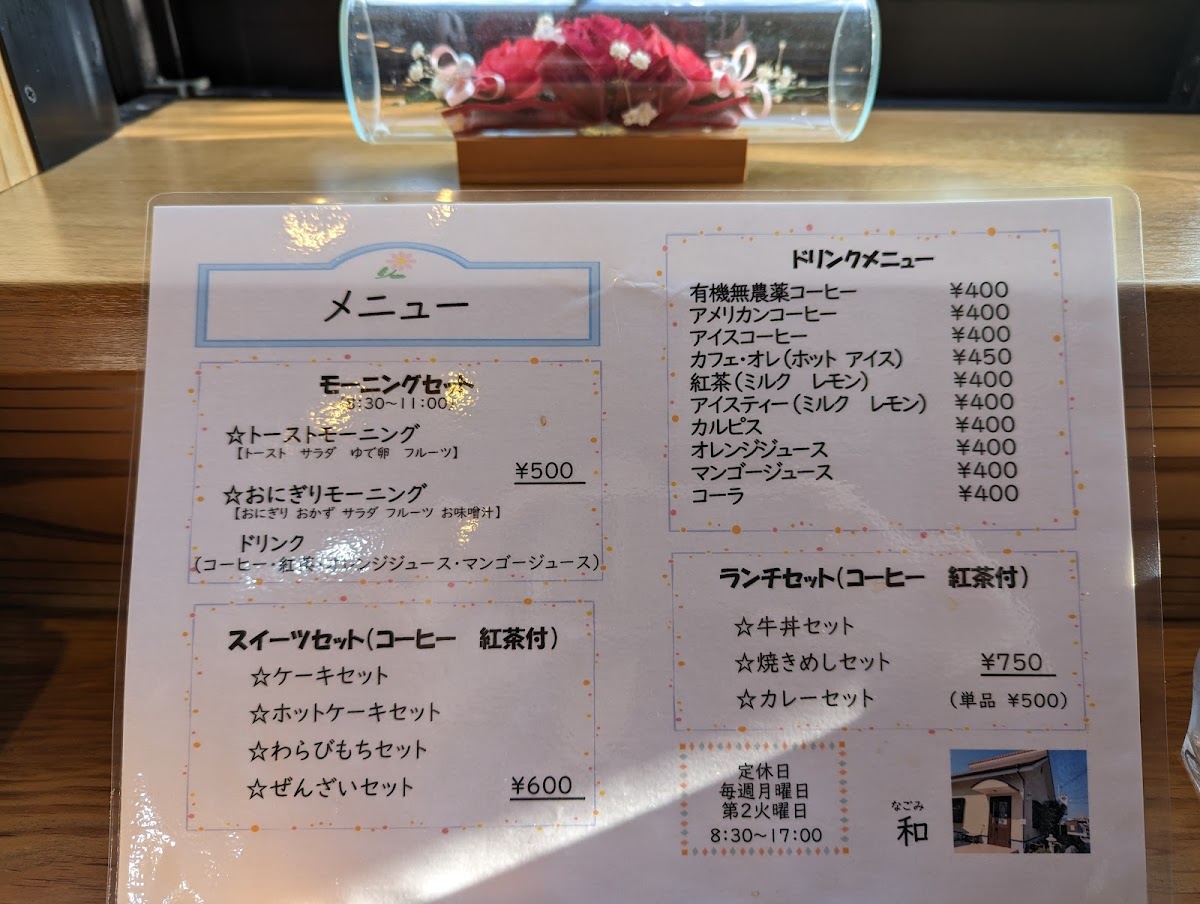 メニュー
モーニングセット
:30～11:00
☆トーストモーニング
【トースト サラダ ゆで卵 フルーツ】
¥500
☆おにぎりモーニング
【おにぎり おかず サラダ フルーツ お味噌汁】
ドリンク
(コーヒー・紅茶・オレンジジュース・マンゴージュース)
スイーツセット(コーヒー 紅茶付)
☆ケーキセット
☆ホットケーキセット
☆わらびもちセット
☆ぜんざいセット ¥600
ドリンクメニュー
有機無農薬コーヒー ¥400
アメリカンコーヒー ¥400
アイスコーヒー ¥400
カフェ・オレ(ホット アイス) ¥450
紅茶(ミルク レモン) ¥400
アイスティー(ミルク レモン) ¥400
カルピス ¥400
オレンジジュース ¥400
マンゴージュース ¥400
コーラ ¥400
ランチセット(コーヒー 紅茶付)
☆牛丼セット
☆焼きめしセット ¥750
☆カレーセット (単品 ¥500)
定休日
毎週月曜日
第2火曜日
8:30～17:00
なごみ
和